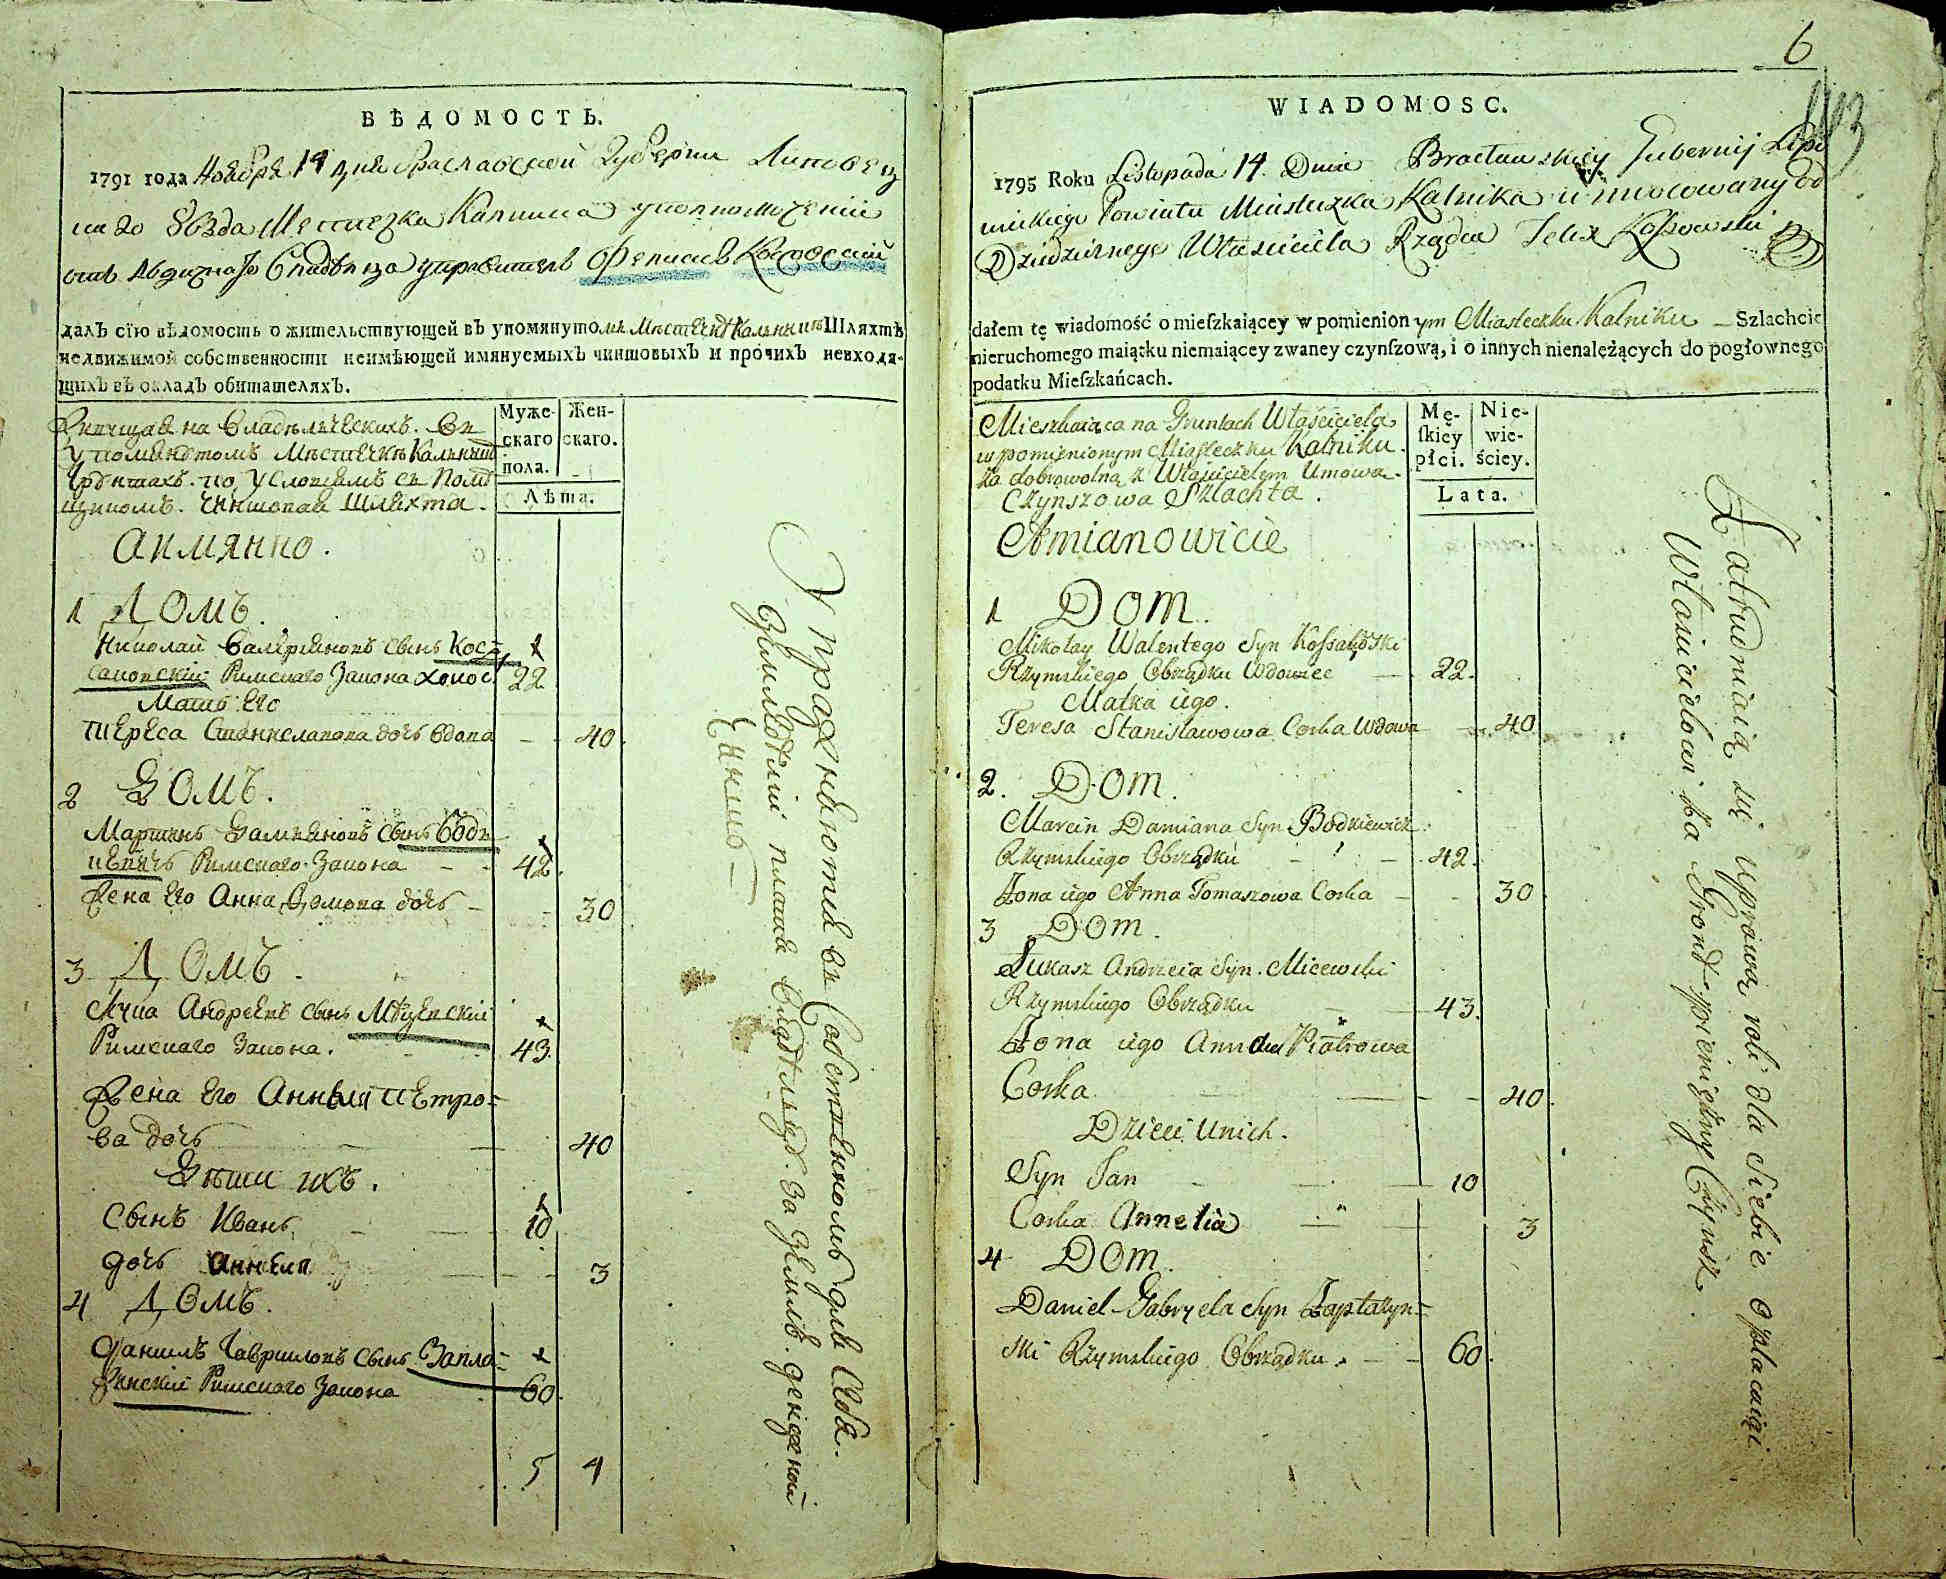 ВѢДОМОСТЬ.
1791 года Ноября 14 дня Браславской Губернии Липовец
каго Уѣзда Местечка Калника уполномоченій
отъ Дѣдичнаго Владѣльца управитель Феликсъ Косовскій
далъ сїю вѣдомость о жительствующей въ упомянутомъ Мѣстечкѣ Кальникѣ Шляхтѣ
недвижимой собственности неимѣющей имянуемыхъ чиншовыхъ и прочихъ невходя-
щихъ въ окладъ обитателяхъ.
Живущая на Владѣльческихъ въ
Упомянутомъ Мѣстечкѣ Кальникѣ
Грунтахъ по Условіямъ съ Помѣ
щикомъ. Чиншовая Шляхта.
Муже-
скаго
пола.
Жен-
скаго.
Лѣта.
АКМЯНКО.
1 ДОМЪ.
Николай Валеріяновъ сынъ Кос=
саковскій Римскаго Закона холос. 22
Мать Его
Тереса Станиславова дочь вдова 40
2 ДОМЪ.
Мартинъ Даміяновъ Сынъ Бодк
кевичъ Римскаго Закона 42
Жена Его Анна Томова дочь 30
3 ДОМЪ.
Лука Андреевъ сынъ Мѣцевскій
Римскаго Закона. 43
Жена Его Анна Петро=
ва дочь 40
Дѣти ихъ.
Сынъ Иванъ 10
дочь Аннеля 3
4 ДОМЪ.
Данилъ Гавриловъ Сынъ Запла=
тинскій Римскаго Закона 60
5 4
Упражняются въ Собственномъ для Себя
Земледѣліи платя Владѣльцу за Землю денежной
Чиншъ
6
WIADOMOSC.
1795 Roku Listopada 14. Dnia Bracławskiey Gubernij Lipo
wieckiego Powiatu Miasteczka Kalnika umocowany od
Dziedzicznego Właściciela Rządca Felix Kossowski
dałem tę wiadomość o mieſzkaiącey w pomienionym Miasteczku Kalniku – Szlachcie
nieruchomego maiątku niemaiącey zwaney czynſzową, i o innych nienależących do pogłownego
podatku Mieſzkańcach.
Mieszkaiąca na Gruntach Właściciela
w pomienionym Miasteczku Kalniku.
za dobrowolną z Właścicielem Umową.
Czynszowa Szlachta.
Mę-
ſkiey
płci.
Nie-
wie-
ściey.
Lata.
Amianowicie
1 Dom.
Mikołay Walentego Syn Kossakowski
Rzymskiego Obrządku Wdowiec 22.
Matka iego.
Teresa Stanisławowa Corka Wdowa 40
2. Dom.
Marcin Damiana Syn Bodkiewicz
Rzymskiego Obrządku 42.
Żona iego Anna Tomaszowa Corka 30
3 Dom.
Łukasz Andrzeia Syn. Micewski
Rzymskiego Obrządku 43.
Żona iego Anna Piotrowa
Corka 40.
Dzieci Unich.
Syn Jan 10
Corka Annelia 3
4 Dom.
Daniel Gabryela Syn Zaplatyn=
ski Rzymskiego Obrządku. 60.
Zatrudniaią się uprawą roli dla siebie opłacaiąc
Właścicielowi za Grond pieniężny Czynsz.